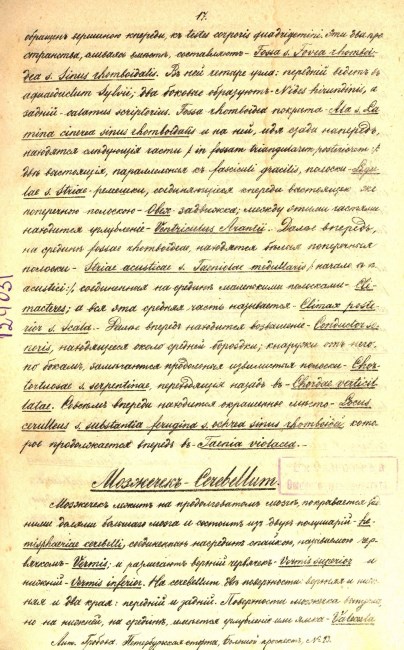 17.
обращенъ вершиною кпереди, къ testes corporis quadrigemini. Эти два про-
странства, сливаясь вмѣстѣ, составляютъ - Fossa s. Fovea rhomboi-
dea s. Sinus rhomboidalis. Въ ней четыре угла: передній ведетъ въ
aquaeductum Sylvii; два боковые образуютъ - Nidus hirundinis, а
задній - calamus scriptorius. Fossa rhomboidea покрыта - Ala s. La-
mina cinerea sinus rhomboidalis и на ней, идя сзади напередъ,
находятся слѣдующія части /: in fossam triangularem posteriorem :/
двѣ выстоящія, параллельныя къ fasciculi gracilis, полоски - Ligu-
lae s. Striae - ремешки, соединяющіеся кпереди выстоящею же
поперечною полоскою - Obex - задвижка; между этими частями
находится углубленіе - Ventriculus Arantii. Далѣе впередъ,
на срединѣ fossae rhomboideae, находятся бѣлыя поперечныя
полоски - Striae acusticae s. Taeniolae medullaris /: начало n.
acustici :/, соединенная на срединѣ маленькими полосками - Cli-
macteres; а вся эта средняя часть называется - Climax poste-
rior s. Scala. Далѣе впередъ находится возвышеніе - Conductor so-
noris, находящееся около средней бороздки; кнаружи отъ него,
по бокамъ, замѣчаются продольныя извилистыя полоски - Chor-
tortuosae s. serpentinae, переходящія назадъ въ - Chordae verticil-
latae. Совсѣмъ впереди находится окрашенное мѣсто - Locus
ceruleus s. substantia ferugina s. ochrea sinus rhomboidei, кото-
рое продолжается впередъ въ - Taenia violacea.
Мозжечекъ - Cerebellum.
Мозжечекъ лежитъ на продолговатомъ мозгѣ, покрывается зад-
ними долями большаго мозга и состоитъ изъ двухъ полушарій - He-
misphaeriae cerebelli, соединенныхъ насрединѣ спайкою, называемою чер-
вячкомъ - Vermis; и различаютъ верхній червячекъ - Vermis superior и
нижній - Vermis inferior. На cerebellum двѣ поверхности: верхняя и ниж-
няя и два края: передній и задній. Поверхности мозжечка выпуклы,
но на нижней, на срединѣ, имѣется углубленіе или ямка - Valecula
Лит. Гробова. Петербургская сторона, Большой проспектъ, № 23.
124031